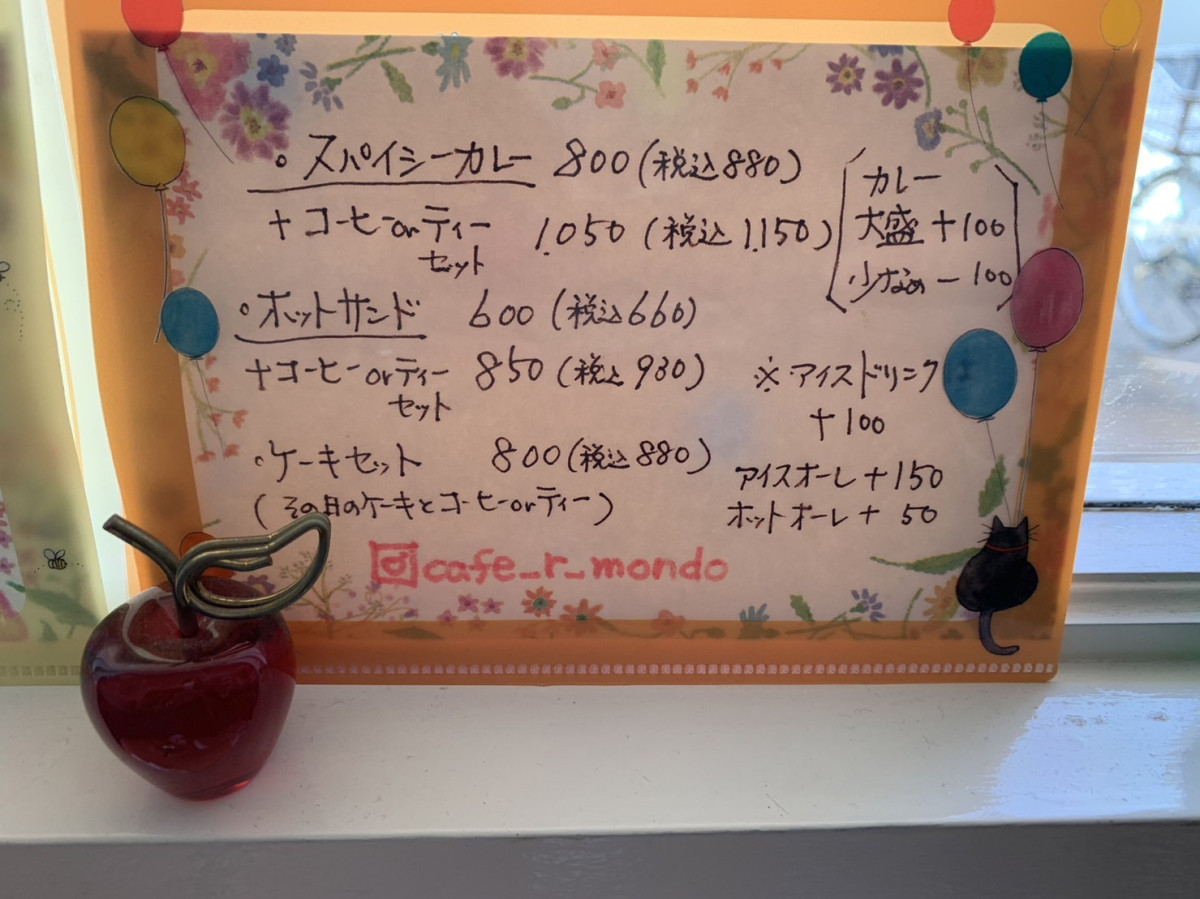 。スパイシーカレー 800(税込880)
+コーヒーorティーセット 1.050 (税込1.150)
カレー
大盛+100
少なめ-100
。ホットサンド 600 (税込660)
+コーヒーorティーセット 850 (税込930)
※アイスドリンク
+100
・ケーキセット 800(税込880)
(その日のケーキとコーヒーorティー)
アイスオーレ+150
ホットオーレ+ 50
cafe_r_mondo